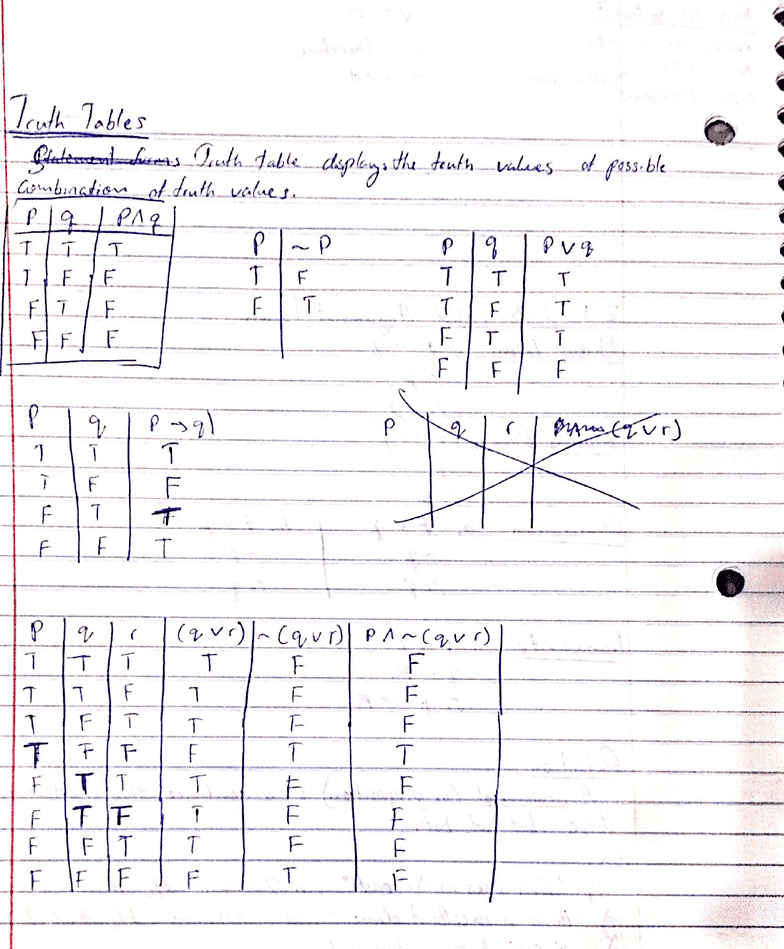 Truth Tables
Statement forms Truth table displays the truth values of possible
combination of truth values.
P q P∧q
T T T
T F F
F T F
F F F
P ~P
T F
F T
P q P∨q
T T T
T F T
F T T
F F F
P q P→q
T T T
T F F
F T T
F F T
P q r (q∨r)
P q r (q∨r) ~(q∨r) P∧~(q∨r)
T T T T F F
T T F T F F
T F T T F F
T F F F T T
F T T T F F
F T F T F F
F F T T F F
F F F F T F